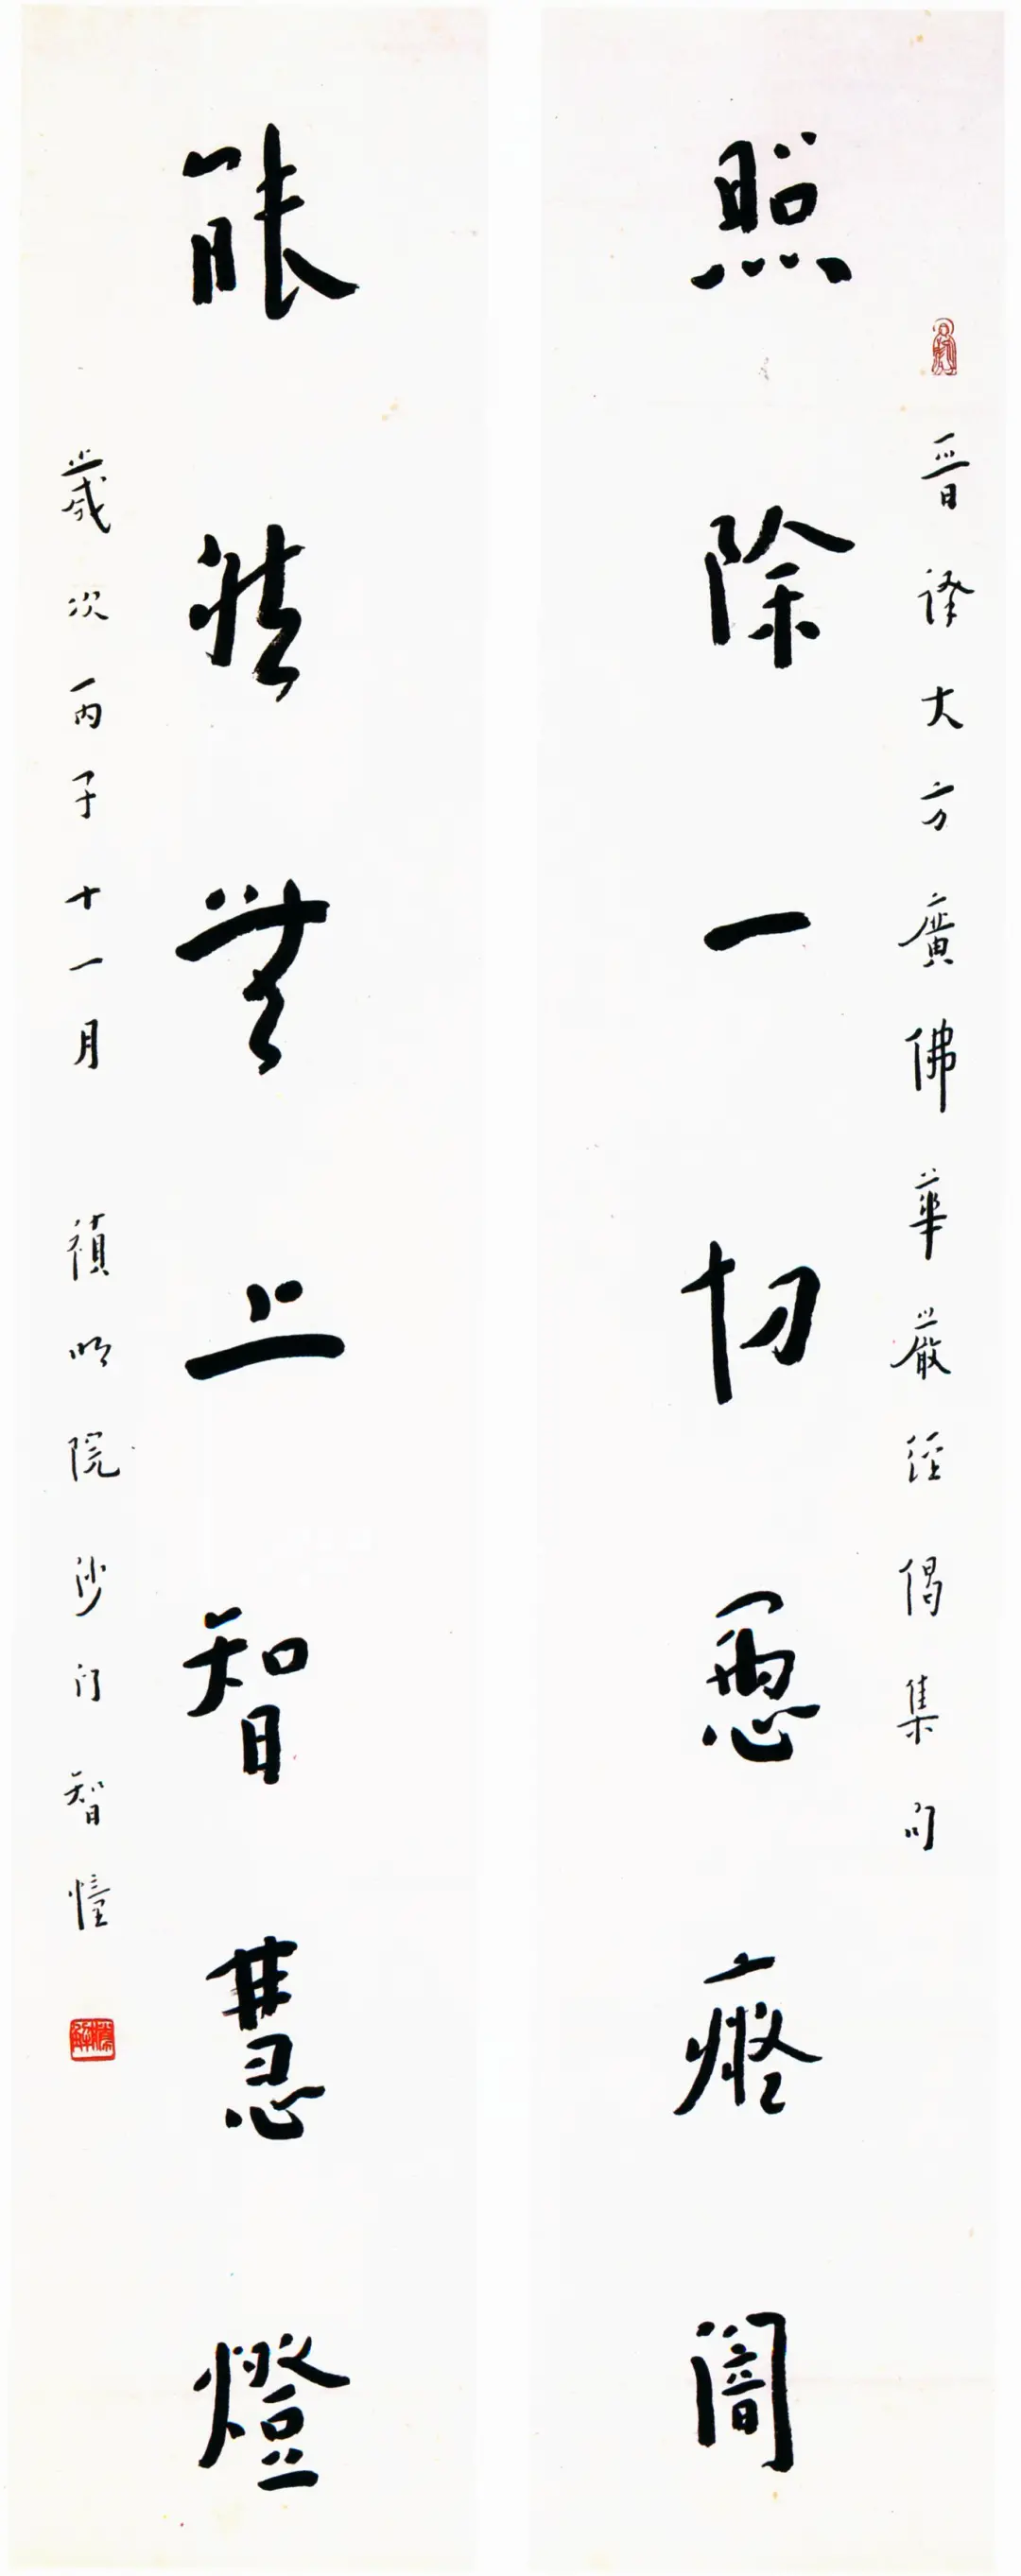 晉譯大方廣佛華嚴經偈集句
照除一切惡癡闇
能然無上智慧燈
歲次丙子十一月 禎明院沙門智憧